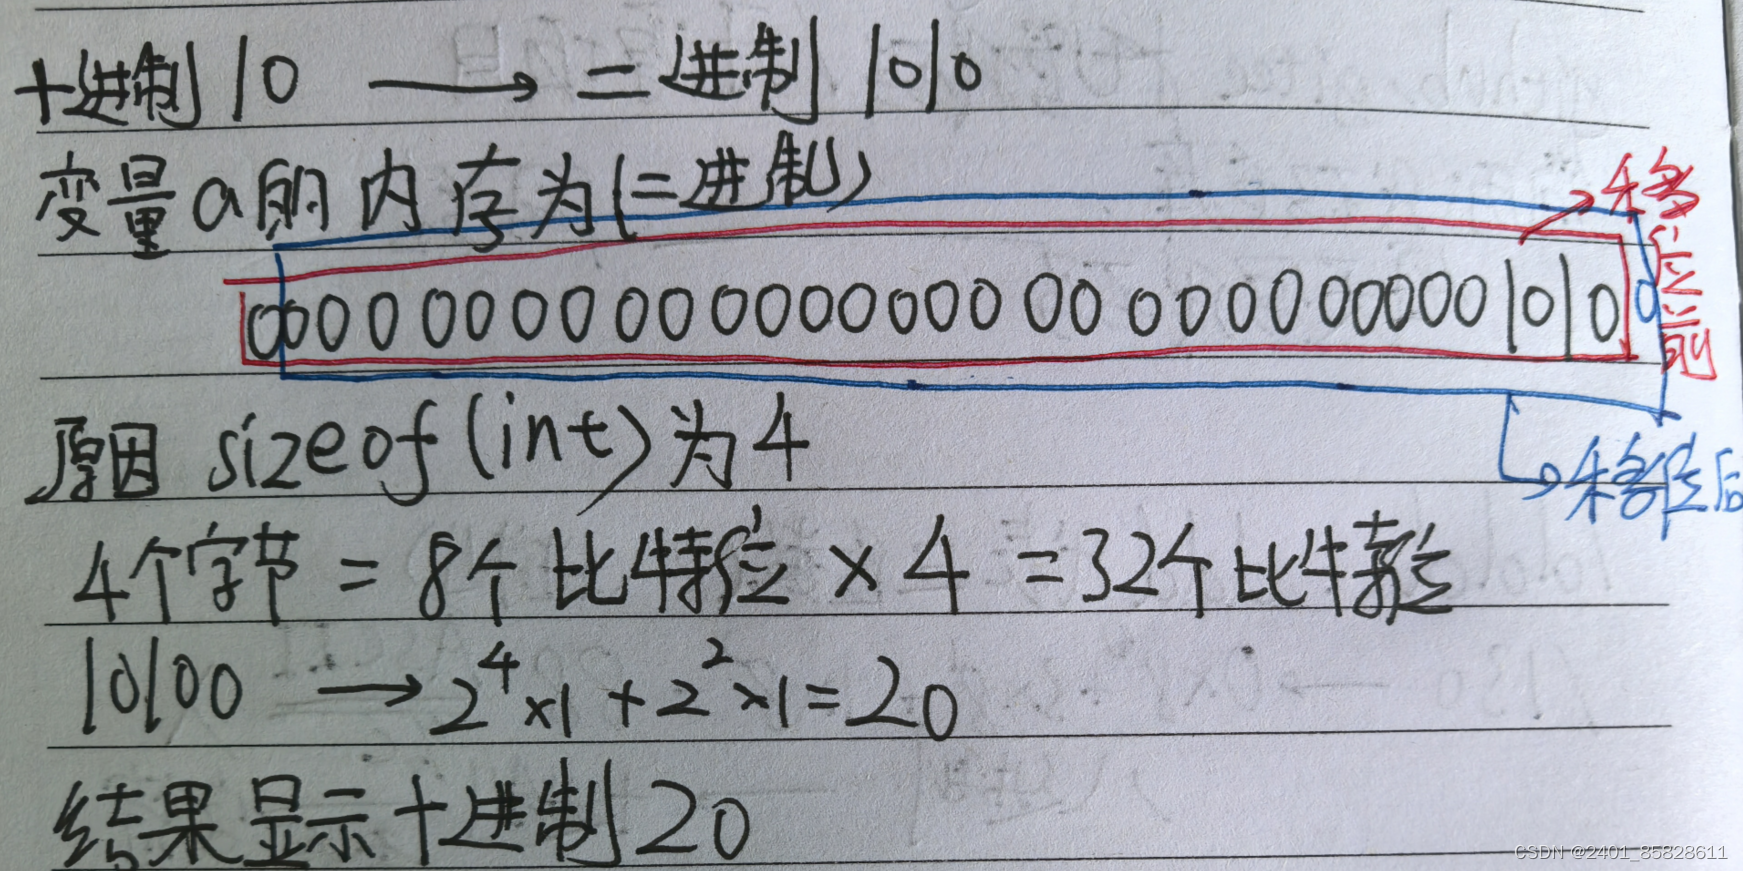 十进制10 → 二进制1010
变量a的内存为(二进制)
移位前
0000 00000 000000000 00 00000000 1010 0
原因 sizeof(int)为4
移位后
4个字节 = 8个比特位 × 4 = 32个比特位
10100 → 2⁴×1 + 2²×1 = 20
结果显示十进制20
CSDN @2401_85828611